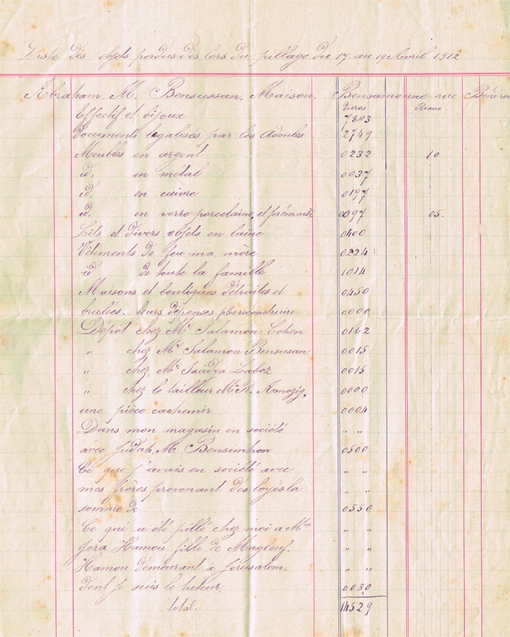 Liste des objets perdus dès lors du pillage du 17 au 19 Avril 1912
Abraham, M. Bensussan, Maison, Bensamonne rue
Effectif et bijoux Duros 7803 Réaux
Documents légalisés par les Adoules 2749
Meubles en argent 0232 10
id. en métal 0037
id. en cuivre 0197
id. en verre porcelaine, et 0097 05
Lits et divers objets en laine 0400
Vêtements de feu ma mère 0224
id de toute la famille 1014
Maisons et boutiques détruites et 0450
leurs dépenses 0000
Dépôt chez Mr Salamon Cohen 0162
" chez Mr Salamon Bensusan 0015
" chez Mr Saadya 0015
" chez le tailleur 0000
une pièce cachemir 0004
Dans mon magasin en société " "
avec Judah, M. Bensimhon 0500
Ce que j'avais en société avec " "
mes frères provenant des loyés la " "
somme de 0550
Ce qui a été pillé chez moi a Mme " "
Hamou fille de Maglouf. " "
Hamou demeurant à Jérusalem, " "
dont je suis le tuteur, 0080
total. 14529